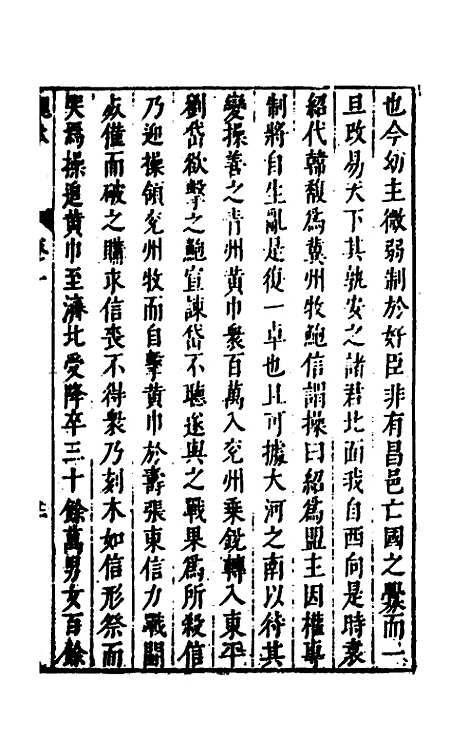 也今幼主微弱制於奸臣非有昌邑亡國之釁而一
旦改易天下其孰安之諸君北面我自西向是時袁
紹代韓馥為冀州牧鮑信謂操曰紹為盟主因權專
制將自生亂是復一卓也且可據大河之南以待其
變操善之青州黃巾衆百萬入兗州乘銳轉入東平
劉岱欲擊之鮑宣諫岱不聽遂與之戰果為所殺信
乃迎操領兗州牧而自擊黃巾於壽張東信力戰鬭
僅而破之購求信喪不得衆乃刻木如信形祭而
哭焉操追黃巾至濟北受降卒三十餘萬男女百餘